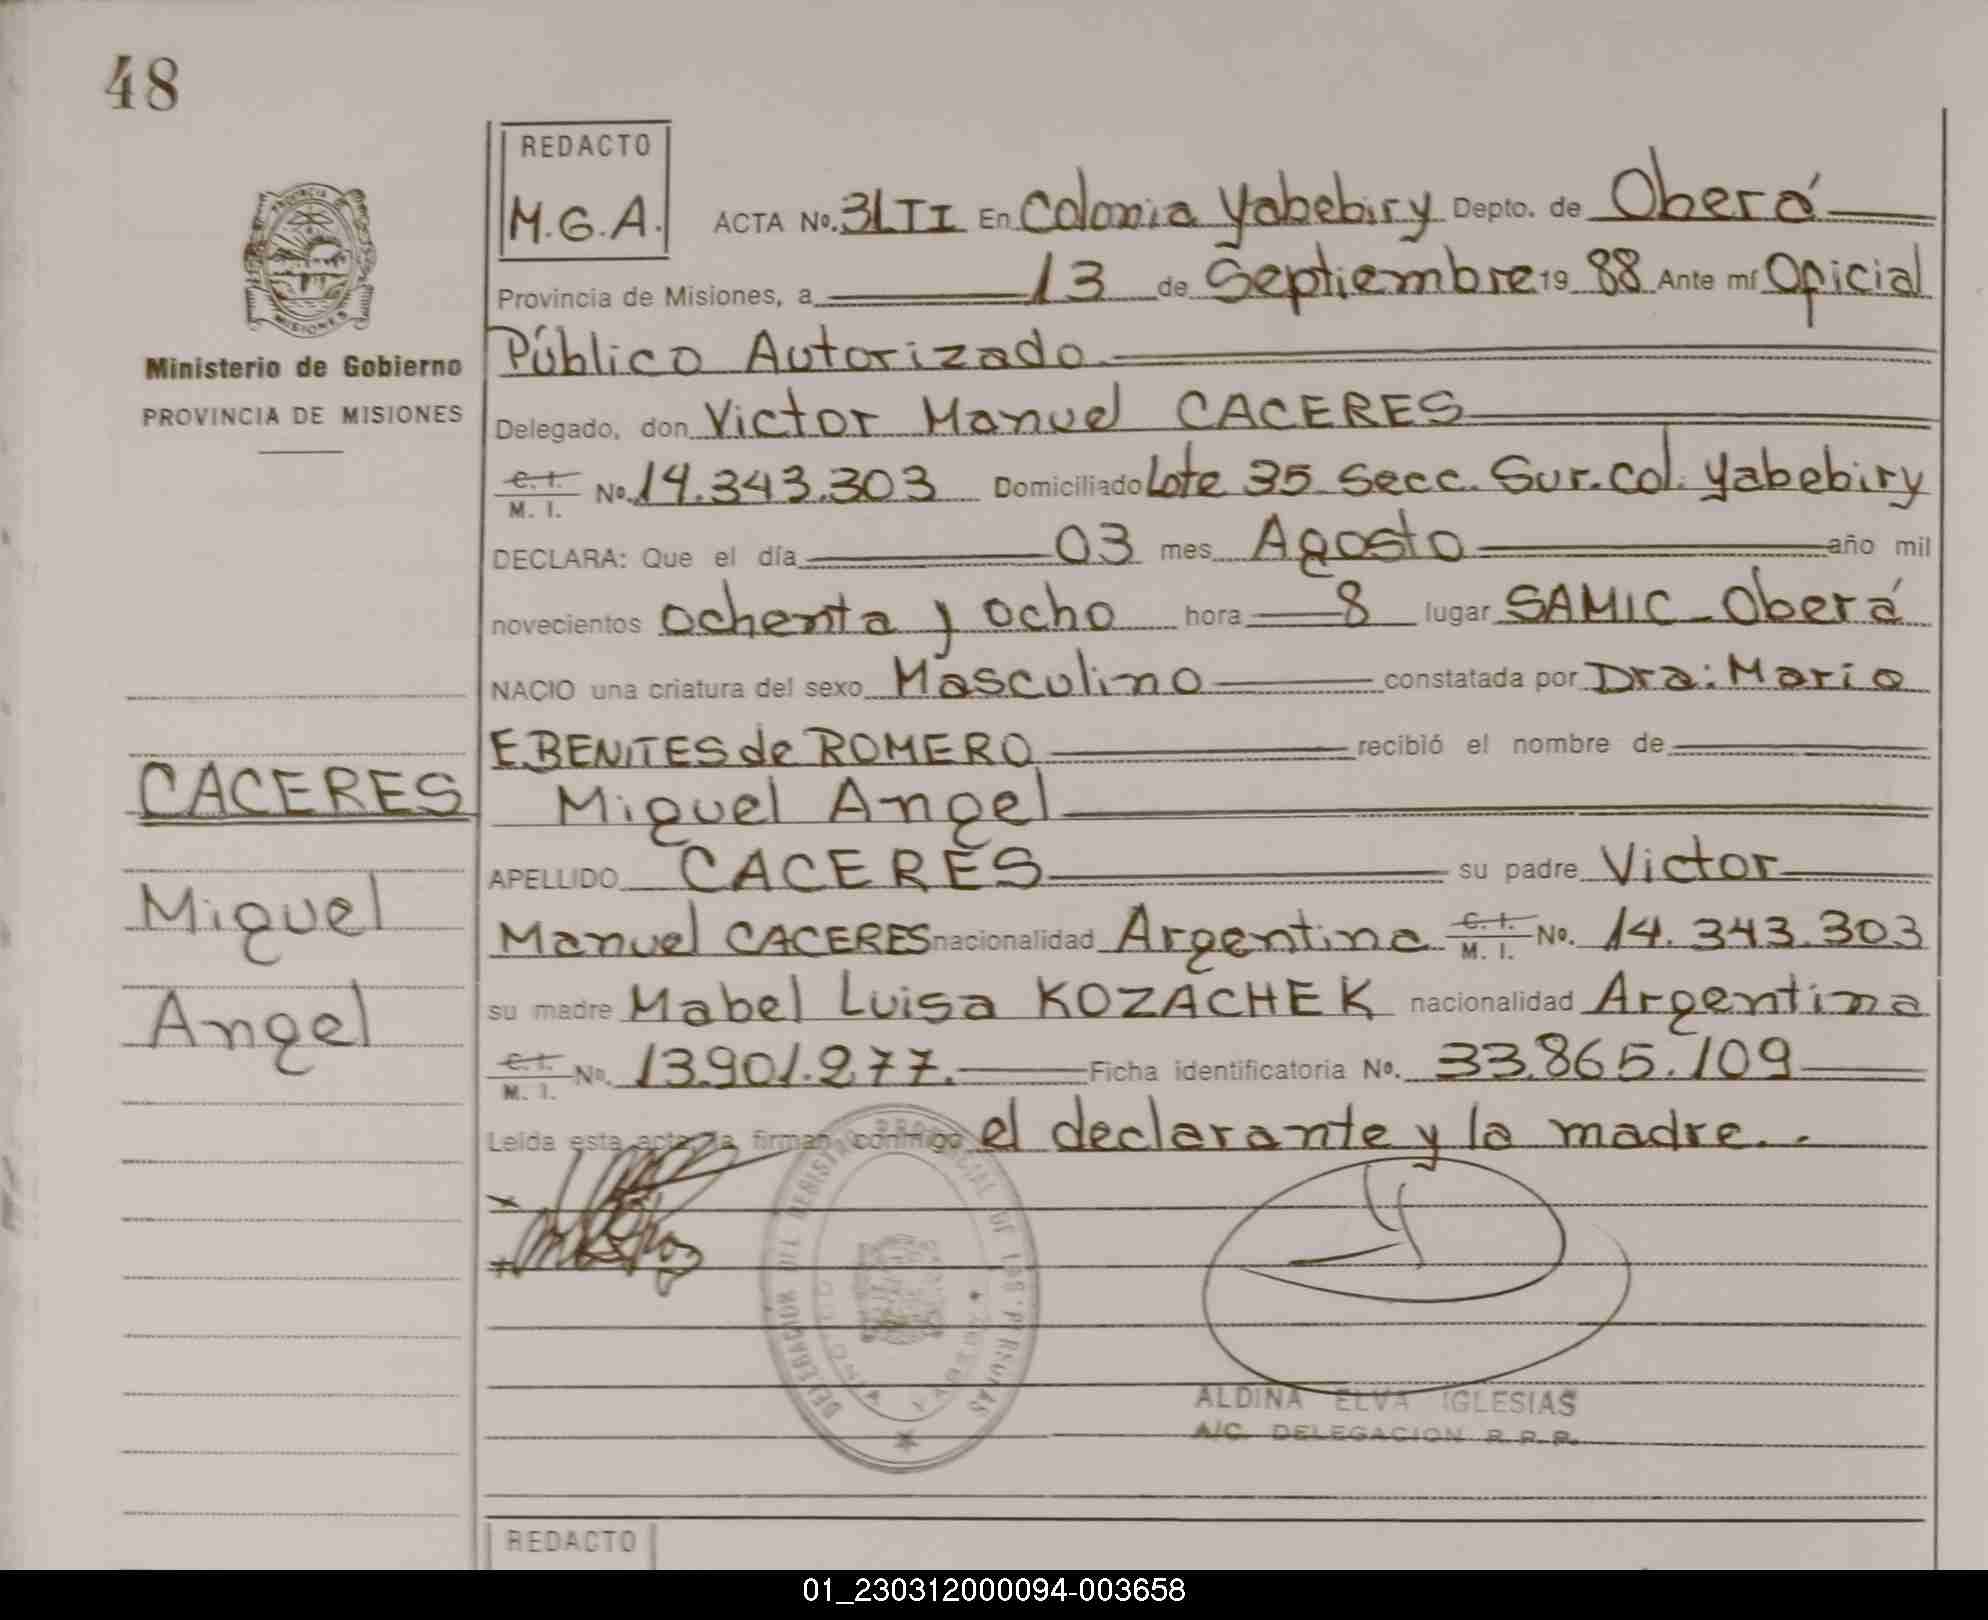 48
REDACTO
M.G.A.
ACTA No. 3LII En Colonia Yabebiry Depto. de Oberá
Provincia de Misiones, a 13 de Septiembre 19 88 Ante mí Oficial
Público Autorizado
Delegado, don Victor Manuel CACERES
C. I. M. I. No. 14.343.303 Domiciliado Lote 35 Secc. Sur. Col. Yabebiry
DECLARA: Que el día 03 mes Agosto año mil
novecientos ochenta y ocho hora 8 lugar SAMIC - Oberá
NACIO una criatura del sexo Masculino constatada por Dra: Maria
E. BENITES de ROMERO recibió el nombre de
Miguel Angel
APELLIDO CACERES su padre Victor
Manuel CACERES nacionalidad Argentina C. I. M. I. No. 14.343.303
su madre Mabel Luisa KOZACHEK nacionalidad Argentina
C. I. M. I. No. 13.901.277. Ficha identificatoria No. 33.865.109
Leída esta acta la firman conmigo el declarante y la madre..
Ministerio de Gobierno
PROVINCIA DE MISIONES
CACERES
Miguel
Angel
PROVINCIA DE MISIONES
DELEGACION DEL REGISTRO PROVINCIAL DE LAS PERSONAS
ALDINA ELVA IGLESIAS
A/C. DELEGACION R.P.P.
REDACTO
01_230312000094-003658